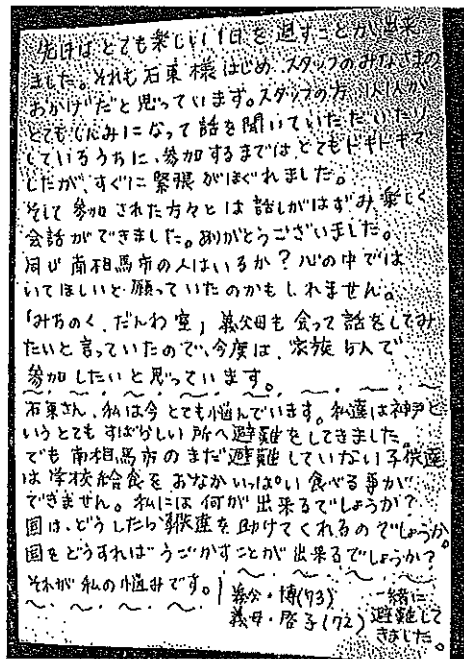 先日はとても楽しい1日を過すことが出来
ました。それも石東様はじめ、スタッフのみなさまの
おかげだと思っています。スタッフの方1人1人が
とてもしんみになって話を聞いていただいたり
しているうちに、参加するまでは、とてもドキドキで
したが、すぐに緊張がほぐれました。
そして参加された方々とは話しがはずみ、楽しく
会話ができました。ありがとうございました。
同じ南相馬市の人はいるか?心の中では
いてほしいと願っていたのかもしれません。
「みちのく、だんわ室」義父母も会って話をしてみ
たいと言っていたので、今度は、家族5人で
参加したいと思っています。
石東さん、私は今とても悩んでいます。私達は神戸と
いうとてもすばらしい所へ避難をしてきました。
でも南相馬市のまだ避難していない子供達
は学校給食をおなかいっぱい食べる事が
できません。私には何が出来るでしょうか?
国は、どうしたら子供達を助けてくれるのでしょうか。
国をどうすればうごかすことが出来るでしょうか?
それが私の悩みです。
義父・博(73)
義母・啓子(72)
一緒に
避難して
きました。